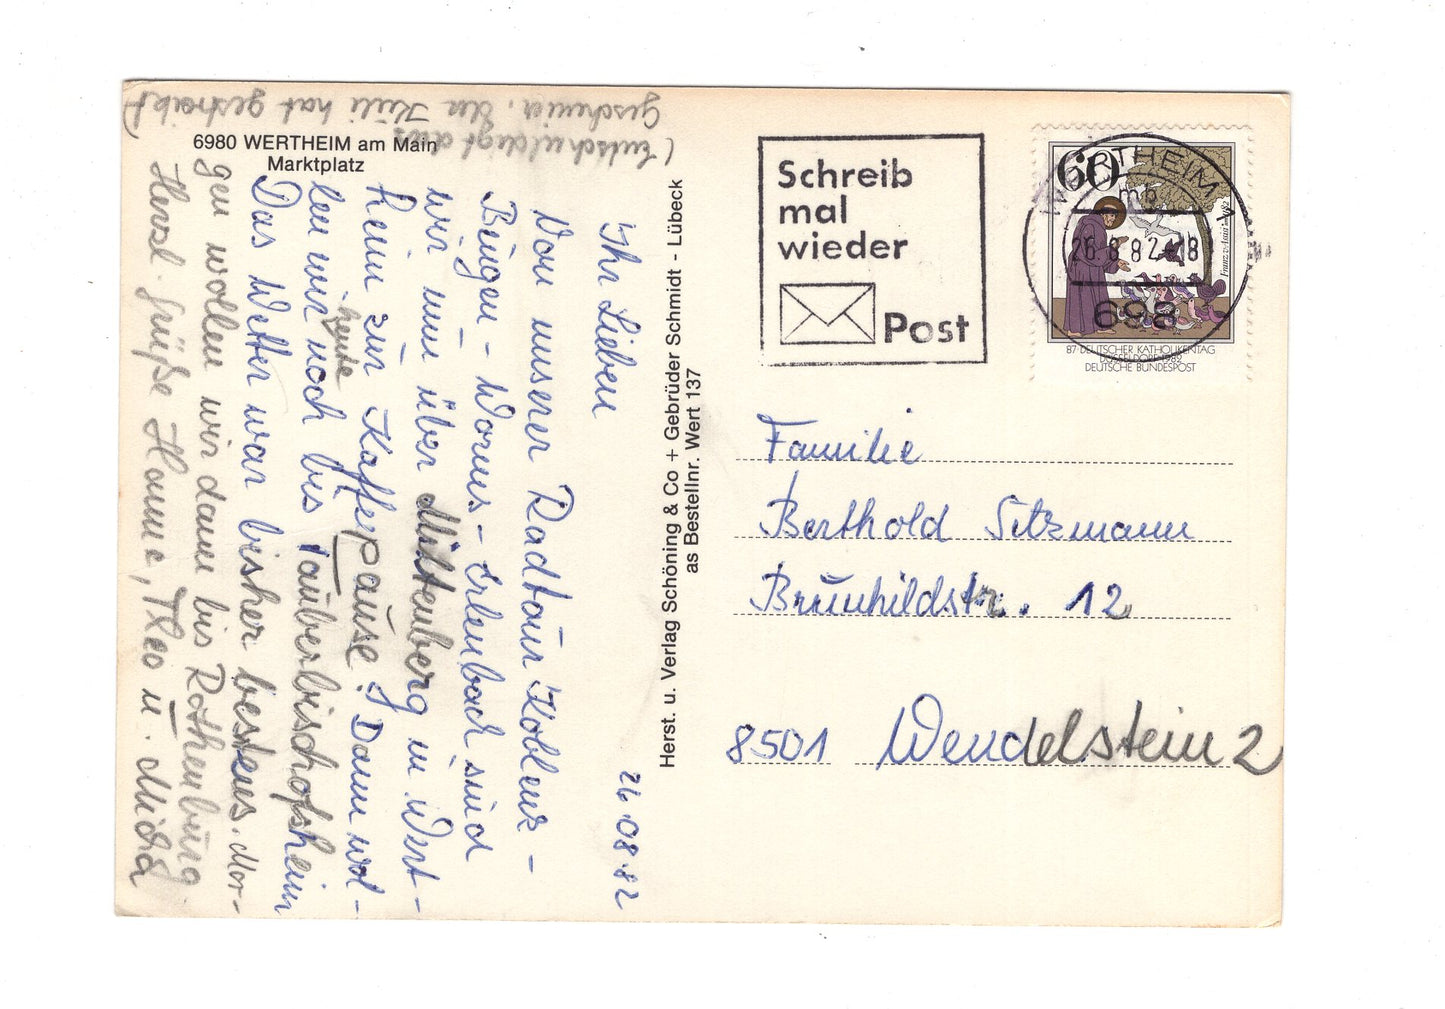 6980 WERTHEIM am Main
Marktplatz
26.08.82
Ihr Lieben
Von unserer Radtour Koblenz -
Bingen - Worms - Erlenbach sind
wir nun über Miltenberg in Wert-
heim zur Kaffeepause! Dann wol-
len wir heute noch bis Tauberbischofsheim
Das Wetter war bisher bestens. Mor-
gen wollen wir dann bis Rothenburg.
Herzl. Grüße Hanne, Theo u.
(Entschuldigt das
, der Kuli hat gestreikt)
Herst. u. Verlag Schöning & Co + Gebrüder Schmidt - Lübeck
as Bestellnr. Wert 137
Schreib
mal
wieder
Post
WERTHEIM
mb
26.8.82-18
698
60
Franz v. Assisi 1182
87. DEUTSCHER KATHOLIKENTAG
DÜSSELDORF 1982
DEUTSCHE BUNDESPOST
Familie
Berthold Sitzmann
Brunhildstr. 12
8501 Wendelstein 2